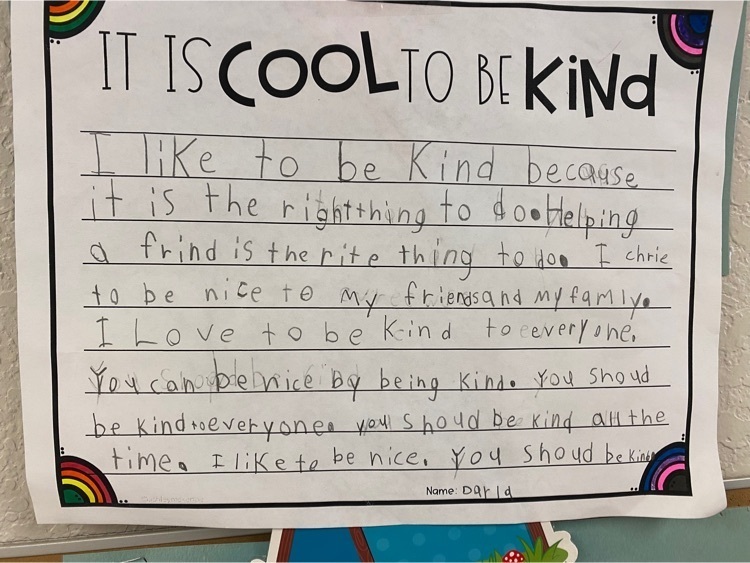 IT IS COOL TO BE KiNd
I like to be Kind because
it is the rightthing to do. Helping
a frind is the rite thing to do. I chrie
to be nice to my friends and my famly.
I Love to be Kind to everyone.
You can be nice By being Kind. You shoud
be kind to everyone. you shoud be kind all the
time. I like to be nice. You shoud be kind
Name: